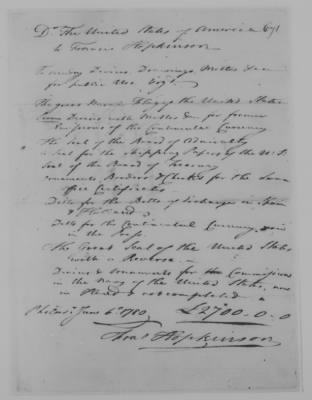 Dr. The United States of America
to Francis Hopkinson
To sundry Devices, Drawings, Mottos &ca
for public Use Vizt.
The great Naval Flag of the United States
Seven Devices with Mottos &c for former
Emissions of the Continental Currency
The Seal of the Board of Admiralty
a Seal for the Shipping Papers of the U.S.
Seal of the Board of Treasury
Ornaments, Borders & Checks for the Loan
Office Certificates
Ditto for the Bills of Exchange in Spain
& Holland
Ditto for the Continental Currency, now
in the Press
The Great Seal of the United States
with a Reverse
Devices & Ornaments for the Commissions
in the Navy of the United States, now
in Hand & not compleated
Philada. June 6th 1780 £2700.0.0
Fras. Hopkinson